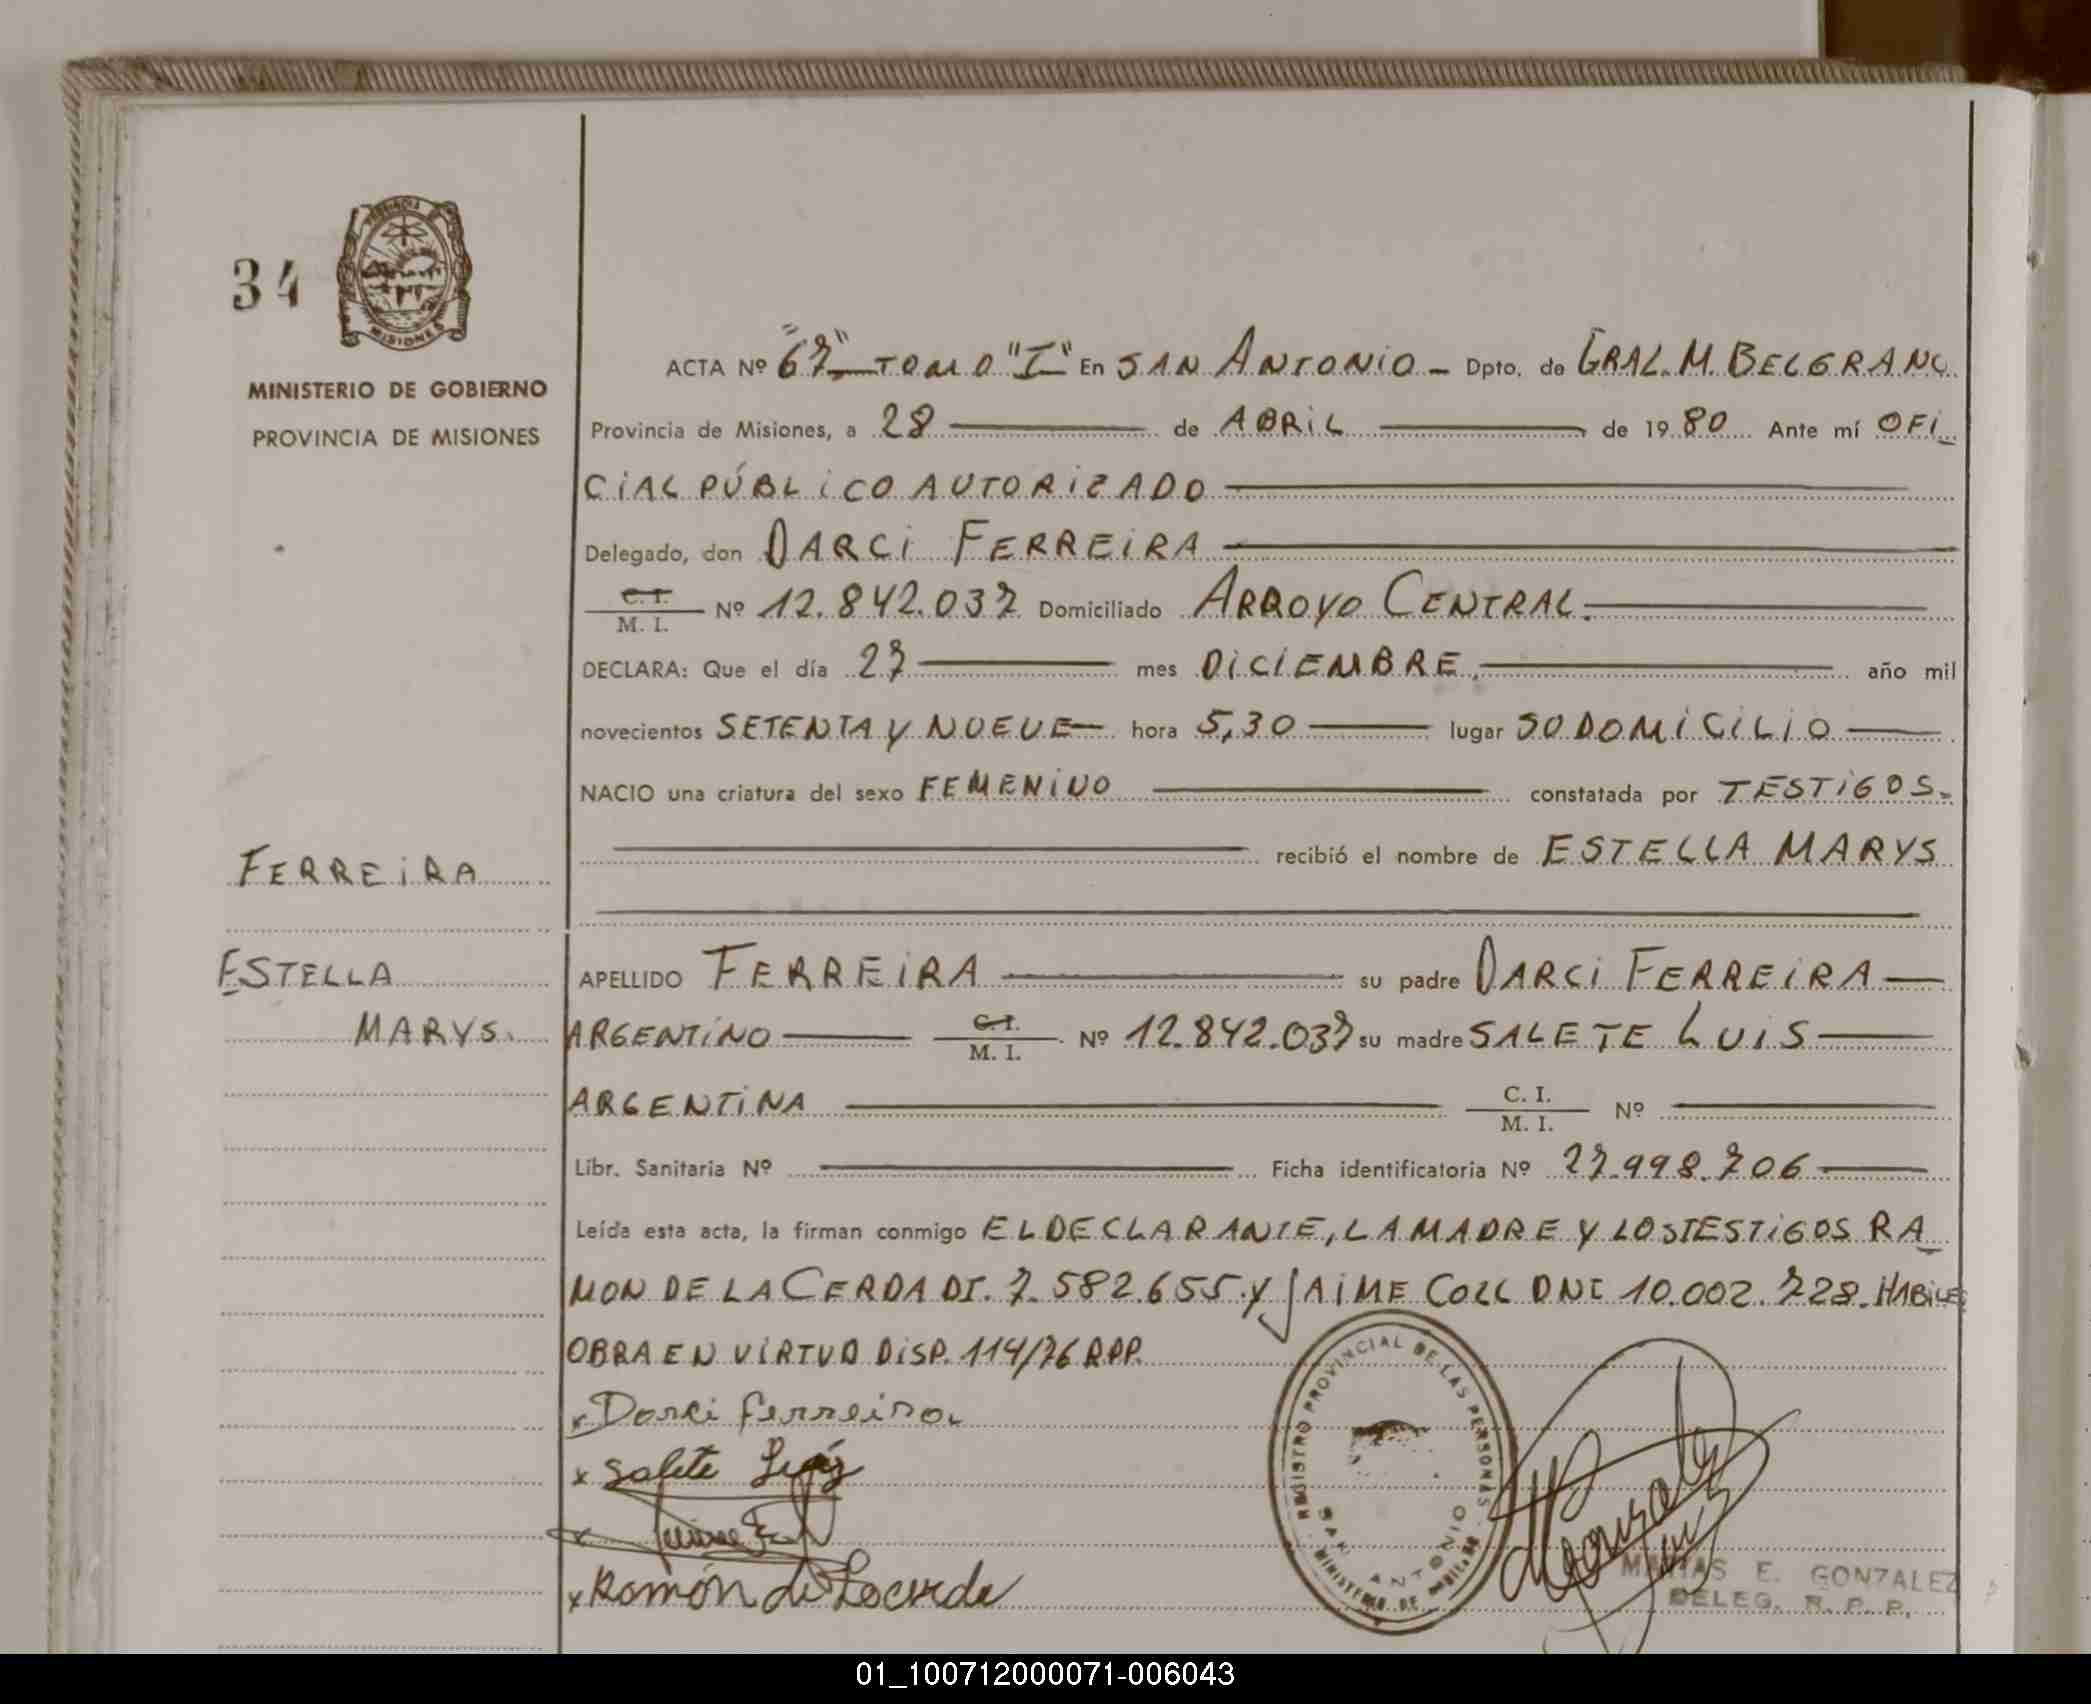 34
PROVINCIA
MISIONES
MINISTERIO DE GOBIERNO
PROVINCIA DE MISIONES
FERREIRA
ESTELLA
MARYS.
ACTA Nº "67" TOMO "I" En SAN ANTONIO - Dpto. de GRAL. M. BELGRANO
Provincia de Misiones, a 28 de ABRIL de 1980 Ante mí OFI_
CIAL PÚBLICO AUTORIZADO
Delegado, don DARCI FERREIRA
C. I. / M. I. Nº 12.842.037 Domiciliado ARROYO CENTRAL.
DECLARA: Que el día 27 mes DICIEMBRE. año mil
novecientos SETENTA Y NUEVE hora 5,30 lugar SO DOMICILIO
NACIO una criatura del sexo FEMENINO constatada por TESTIGOS.
recibió el nombre de ESTELLA MARYS
APELLIDO FERREIRA su padre DARCI FERREIRA
ARGENTINO C. I. / M. I. Nº 12.842.037 su madre SALETE LUIS
ARGENTINA C. I. / M. I. Nº
Libr. Sanitaria Nº Ficha identificatoria Nº 27.998.706
Leída esta acta, la firman conmigo EL DECLARANTE, LA MADRE Y LOS TESTIGOS RA_
MON DE LA CERDA DI. 7.582.655.Y JAIME COLL DNI 10.002.728. HABILES
OBRA EN VIRTUD DISP. 114/76 RPP.
x Darci ferreira
x Salete Luis
x
x Ramón de Lacerda
REGISTRO PROVINCIAL DE LAS PERSONAS
SAN ANTONIO
MINISTERIO DE
Gonzalez
MATIAS E. GONZALEZ
DELEG. R. P. P.
01_100712000071-006043